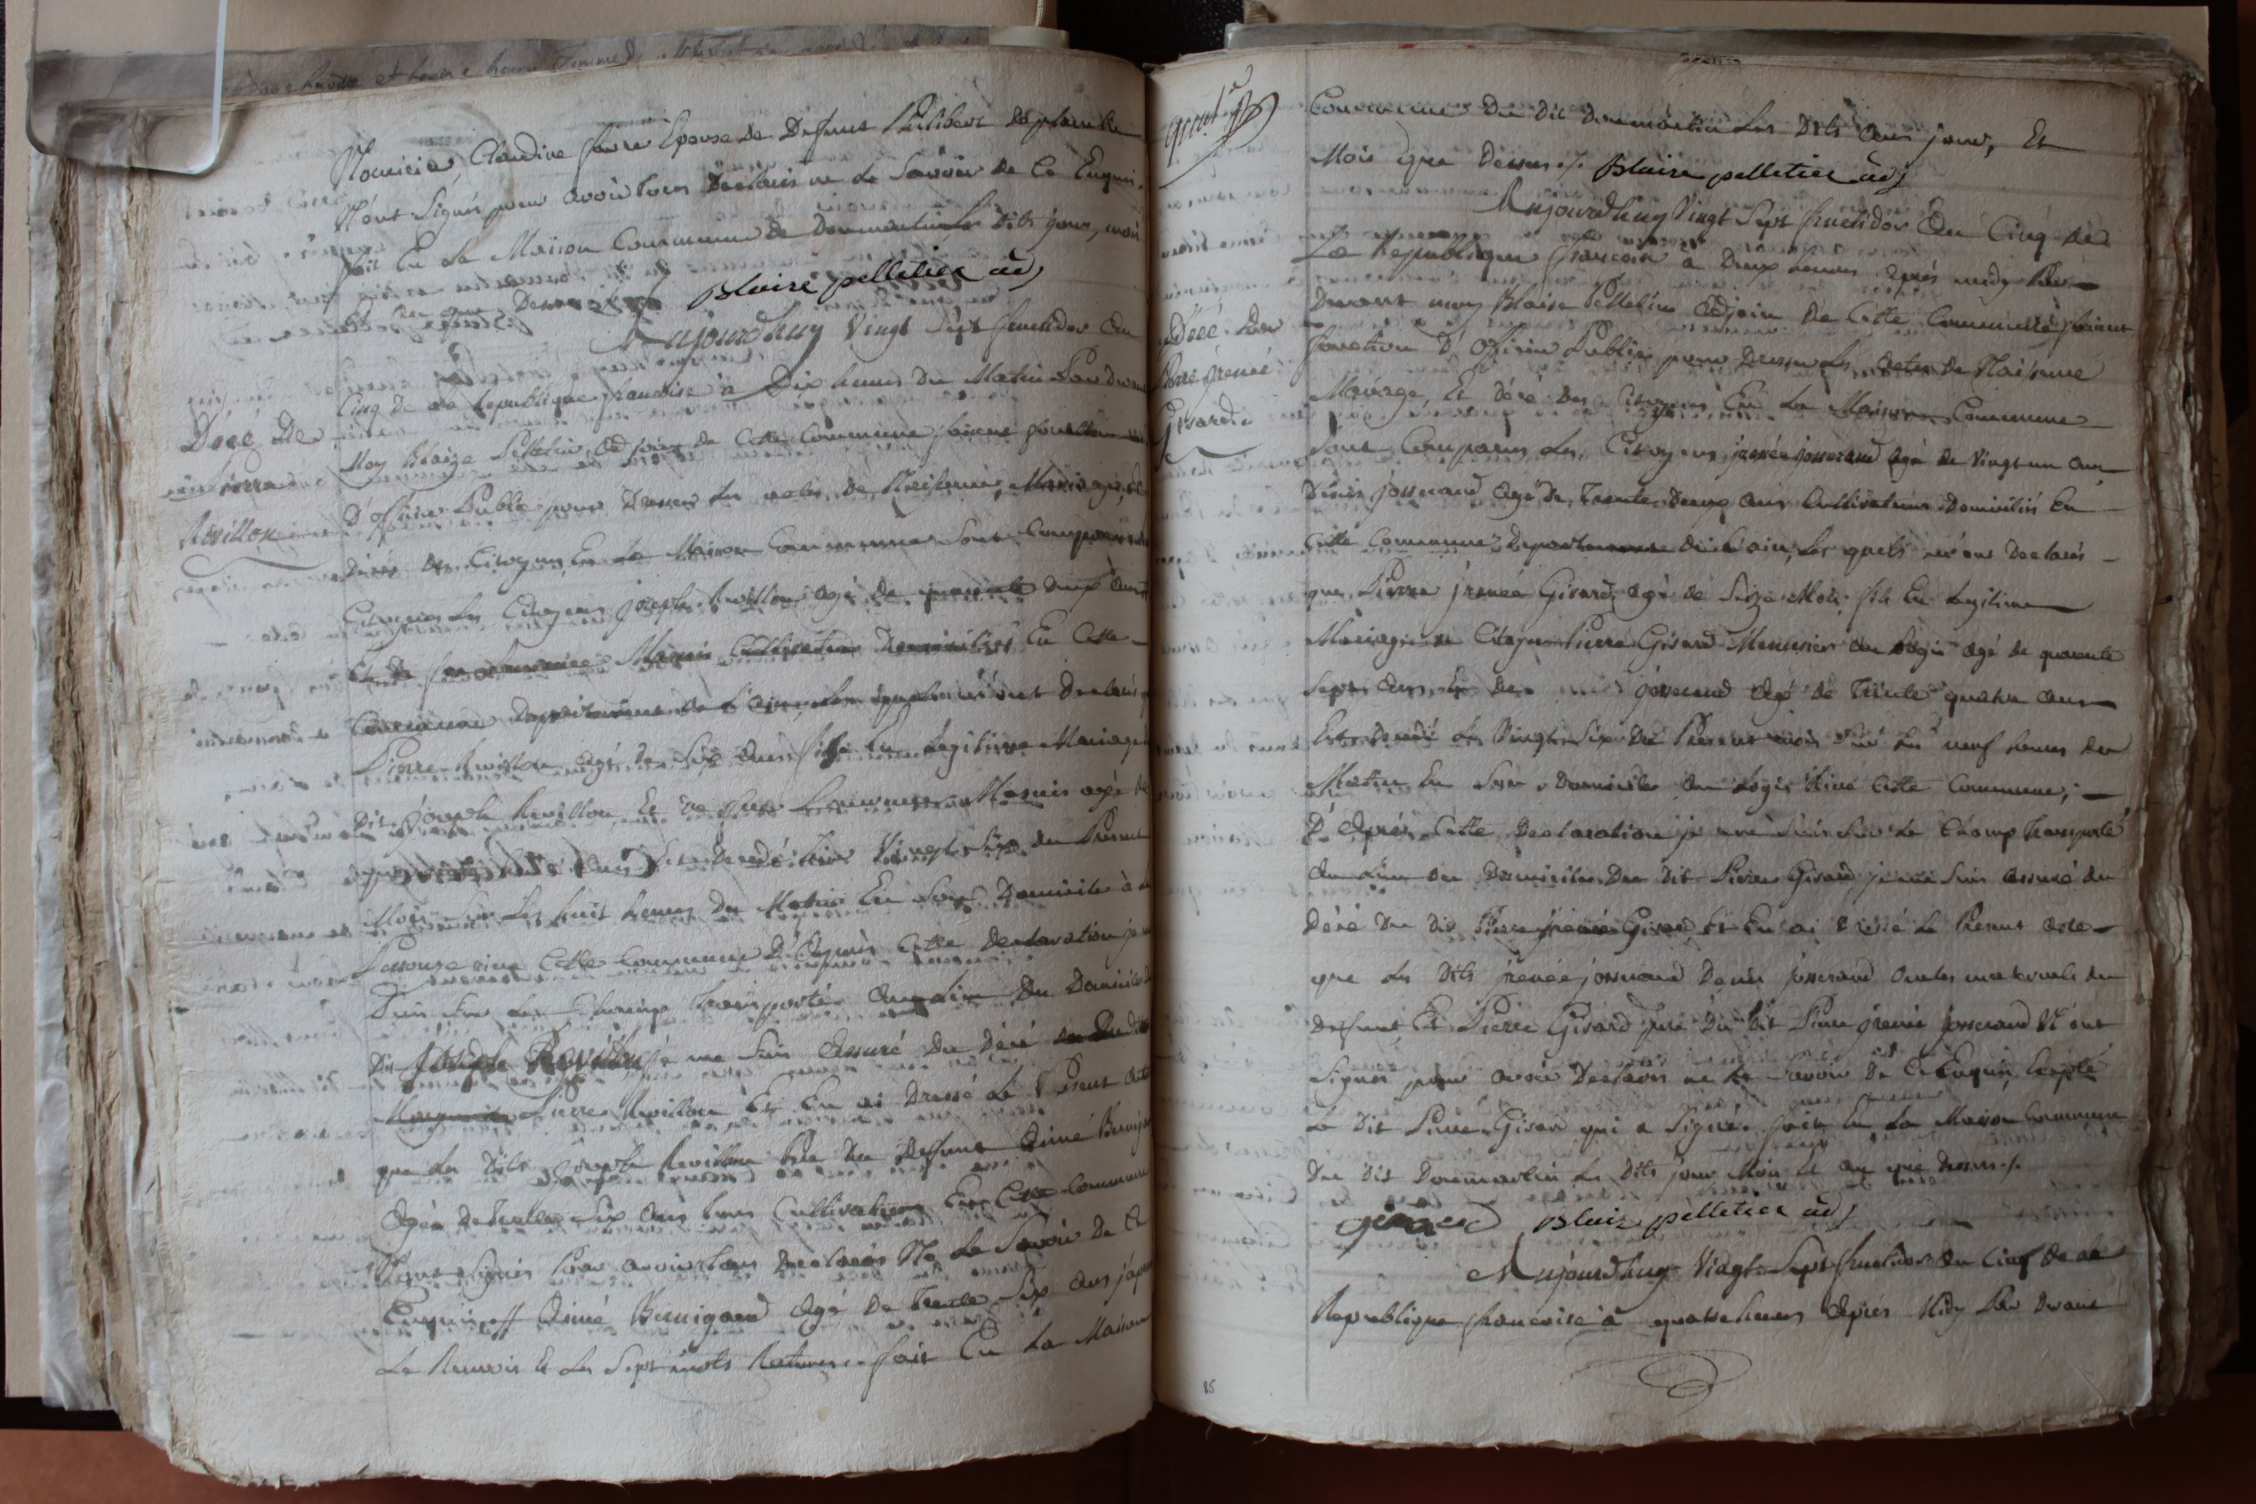 Nouricier, Claudine favre Epouse de Defunt Philibert
N'ont Signés pour avoir tous Declaris ne le Savoir de Ce Enquis
fait En La Maison Commune de Dommartin Les dits jour, mois
Et an que Dessus Blaise pelletier adj
Aujourdhuy Vingt Sept fructidor an
Cinq de la Republique francoise à Dix heures du Matin Par devant
Décé de
pierre
Revillon
Moy Blaize Pelletier, adjoint de Cette Commune faisant fonction
D'officier Public pour Dresser les actes de Naisance, Mariage, Et
Décés des Citoyens En La Maison Commune Sont Comparus
Les Citoyens joseph Revillon agé de quarante deux ans
Et de Marin Cultivateur Domiciliés En Cette
Commune Departement de L'ain, les quels m'ont Declaré
Pierre Revillon agé de Six ans fils En Legitime Mariage
Dit joseph Revillon Et de Marin agé de
Est Decedé hier Vingt Six du Present
Mois Sur Les huit heures du Matin En Son Domicile à
rine Cette Commune D'Aprés Cette Declaration je
Suis Sur Le Champ transporté au lieu Du Domicile
Dit joseph Revillon je me Suis assuré Du Décé du dit
Pierre Revillon Et En ai Dressé Le Present acte
que Les Dits joseph Revillon Pere du Defunt Aimé
Agé de trente Six ans tous Cultivateurs En Cette Commune
N'ont Signés Pour avoir tous Declarés Ne Le Savoir de Ce
Enquis // Aimé agé de trente Six ans j'aprouve
Le Renvoir Et Les Sept mots Ratures. fait En La Maison
Commune Du Dit Dommartin Les Dits ans jour, Et
Mois que Dessus ./. Blaise pelletier adj
Aujourdhuy Vingt Sept fructidor an Cinq de
La Republique francoise à Deux heures aprés midy Par
Devant moy Blaise Pelletier adjoin de Cette Commune faisant
Décé de
Pierre jrenée
Girard
fonction D'Officier Public pour Dresser Les actes de Naisance
Mariage, Et Décé Des Citoyens En La Maison Commune
Sont Comparus Les Citoyens jrenée josserand agé de Vingt un ans
Denis josserand agé De Trente Deux ans Cultivateurs Domiciliés En
Cette Commune Departement de L'ain, Les quels m'ont Declarés
que Pierre jrenée Girard agé de Seize Mois fils En Legitime
Mariage de Citoyen Pierre Girard Menusier au Logis agé de quarente
Sept ans, Et De josserand agé de Trente quatre ans
Est Decedé Le Vingt Six du Present mois Sur Les neuf heures du
Matin En Son Domicile au Logis Rine Cette Commune;
D'Aprés Cette Declaration je me Suis Sur Le Champ transporté
au Lieu du Domicile Du Dit Pierre Girard je me Suis assuré du
Décé Du Dit Pierre jrenée Girard Et En ai Dressé Le Present acte
que Les Dits jrenée josserand Denis josserand oncles maternels du
Defunt, Et Pierre Girard Pere Du Dit Pierre jrenée josserand N'ont
Signés pour avoir Declarés ne Le Savoir De Ce Enquis, Exepté
Le Dit Pierre Girard qui a Signé. fait En La Maison Commune
Du Dit Dommartin Les Dits jour Mois Et an que Dessus ./.
girard Blaize pelletier adj
Aujourdhuy Vingt Sept fructidor an Cinq de la
Republique francoise à quatre heures Aprés Midy Par Devant
85